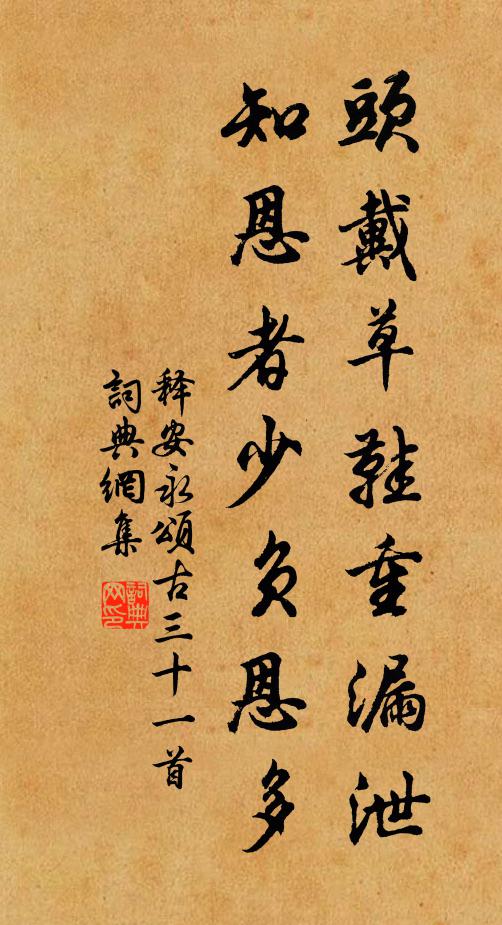 頭戴草鞋重漏泄
知恩者少負恩多
释安永頌古三十一首
詞典網集
詞典網印